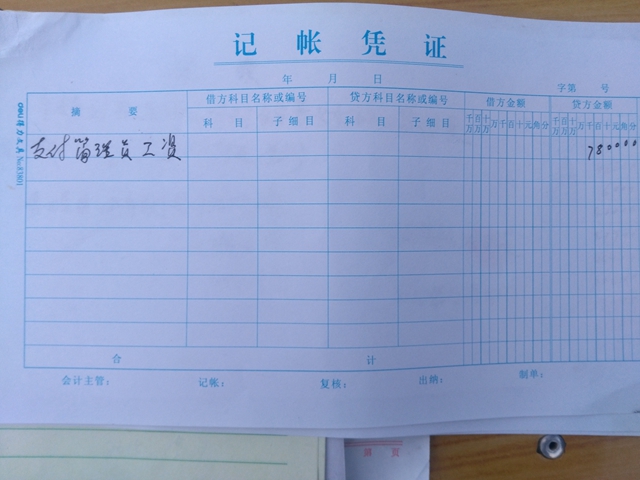 记帐凭证
年 月 日
字第 号
摘 要 借方科目名称或编号 贷方科目名称或编号 借方金额 贷方金额
科 目 子细目 科 目 子细目 千万 百万 十万 万 千 百 十 元 角 分 千万 百万 十万 万 千 百 十 元 角 分
支付管理员工资 780000
合 计
会计主管: 记帐: 复核: 出纳: 制单:
得力文具 No.83801